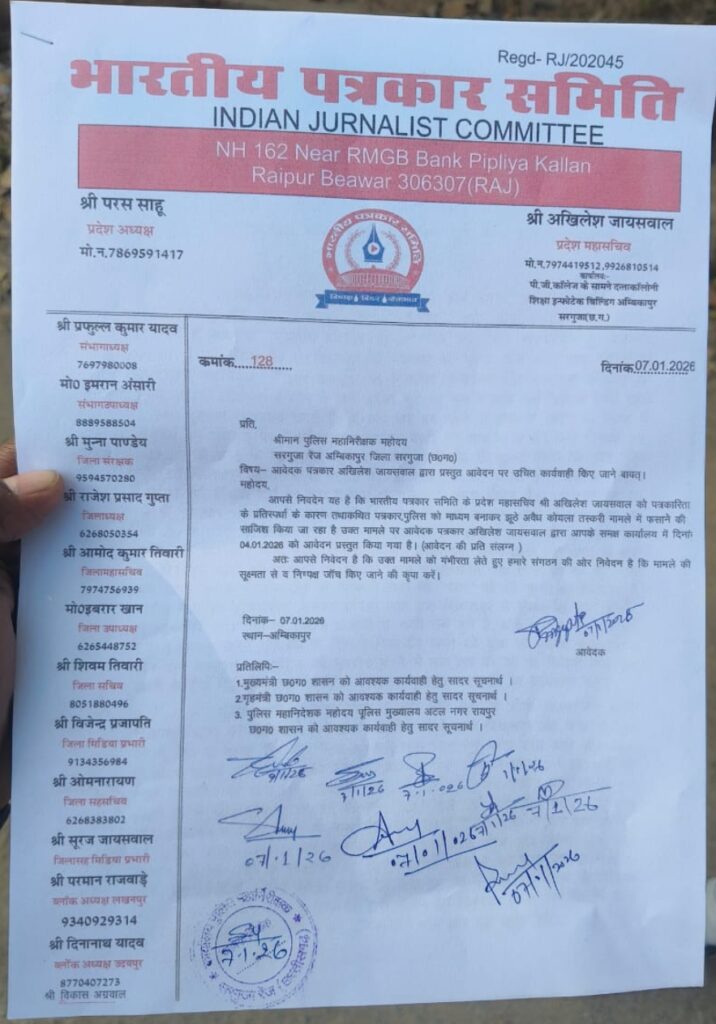 Regd- RJ/202045
भारतीय पत्रकार समिति
INDIAN JURNALIST COMMITTEE
NH 162 Near RMGB Bank Pipliya Kallan
Raipur Beawar 306307(RAJ)
श्री परस साहू
प्रदेश अध्यक्ष
मो.न.7869591417
भारतीय पत्रकार समिति
श्री अखिलेश जायसवाल
प्रदेश महासचिव
मो.न.7974419512,9926810514
कार्यालय:-
पी.जी.कॉलेज के सामने दत्ताकॉलोनी
शिक्षा इन्फोटेक बिल्डिंग अम्बिकापुर
सरगुजा(छ.ग.)
श्री प्रफुल्ल कुमार यादव
संभागाध्यक्ष
7697980008
मो0 इमरान अंसारी
संभागउपाध्यक्ष
8889588504
श्री मुन्ना पाण्डेय
जिला संरक्षक
9594570280
श्री राजेश प्रसाद गुप्ता
जिलाध्यक्ष
6268050354
श्री आमोद कुमार तिवारी
जिलामहासचिव
7974756939
मो0इबरार खान
जिला उपाध्यक्ष
6265448752
श्री शिवम तिवारी
जिला सचिव
8051880496
श्री विजेन्द्र प्रजापति
जिला मिडिया प्रभारी
9134356984
श्री ओमनारायण
जिला सहसचिव
6268383802
श्री सूरज जायसवाल
जिलासह मिडिया प्रभारी
श्री परमान राजवाड़े
ब्लॉक अध्यक्ष लखनपुर
9340929314
श्री दिनानाथ यादव
ब्लॉक अध्यक्ष उदयपुर
8770407273
श्री विकास अग्रवाल
कमांक.....128........
दिनांक.07.01.2026
प्रति,
श्रीमान पुलिस महानिरीक्षक महोदय
सरगुजा रेंज अम्बिकापुर जिला सरगुजा (छ0ग0)
विषय:– आवेदक पत्रकार अखिलेश जायसवाल द्वारा प्रस्तुत आवेदन पर उचित कार्यवाही किए जाने बाबत्।
महोदय,
आपसे निवदेन यह है कि भारतीय पत्रकार समिति के प्रदेश महासचिव श्री अखिलेश जायसवाल को पत्रकारिता
के प्रतिस्पर्धा के कारण तथाकथित पत्रकार,पुलिस को माध्यम बनाकर झूठे अवैध कोयला तस्करी मामले में फसाने की
साजिश किया जा रहा है उक्त मामले पर आवेदक पत्रकार अखिलेश जायसवाल द्वारा आपके समक्ष कार्यालय में दिनांक
04.01.2026 को आवेदन प्रस्तुत किया गया है। (आवेदन की प्रति संलग्न )
अतः आपसे निवेदन है कि उक्त मामले को गंभीरता लेते हुए हमारे संगठन की ओर निवेदन है कि मामले की
सूक्षमता से व निष्पक्ष जाँच किए जाने की कृपा करें।
दिनांक- 07.01.2026
स्थान-अम्बिकापुर
07/1/2026
आवेदक
प्रतिलिपि:–
1.मुख्यमंत्री छ0ग0 शासन को आवश्यक कार्यवाही हेतु सादर सूचनार्थ ।
2.गृहमंत्री छ0ग0 शासन को आवश्यक कार्यवाही हेतु सादर सूचनार्थ ।
3. पुलिस महानिदेशक महोदय पुलिस मुख्यालय अटल नगर रायपुर
छ0ग0 शासन को आवश्यक कार्यवाही हेतु सादर सूचनार्थ ।
7/1/26
7.1.026
7/1/26
7/1/26
07/1/26
07/01/026
07/1/2026
7.1.26
सरगुजा रेंज (छत्तीसगढ़)